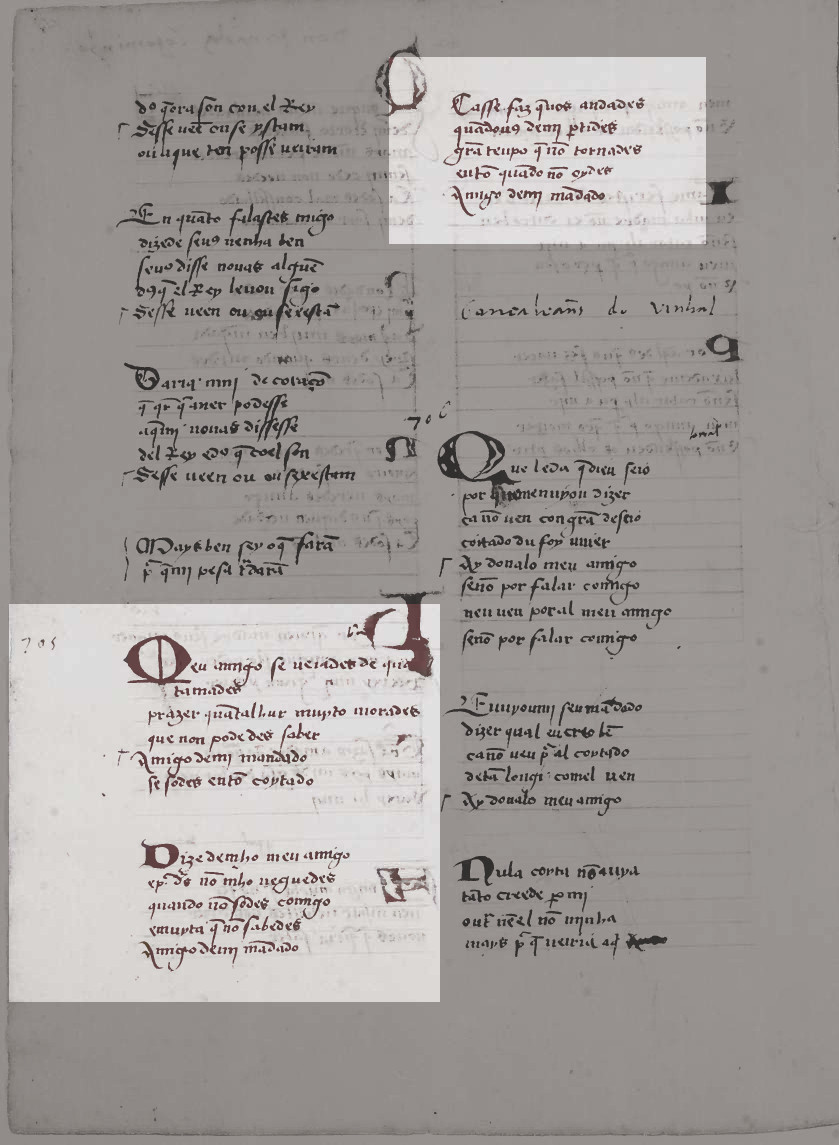 do q̄ora son con el Rey
Desse uee͂ ou se ystam
ou uque ten posse ueiram
En qua͂to falastes migo
dizede seus uenha ben
seuos disse nouas algue͂
dꝯ q̄ el Rey leuou sigo
Desse ueen ou gusexesta͂
Daria mui de coraço͂
q̄ qr q̄ auer podesse
aq̄mi nouas dissesse
del Rey e do q̄ coel son
Desse ueen ou ousexestam
Mays ben sey o q̄ fara͂
pr q̄mi pesa tardara͂
705
Meu amigo se ueiades de qua͂
tamades
prazer qua͂talhur muyto morades
que non podedes saber
Amigo demi mandado
se sodes ento͂ coytado
Dizedemho meu amigo
e pr ds no͂ mho neguedes
quando no͂ sodes comigo
e muyta q̄ no͂ sabedes
Amigo demi ma͂dado
Casse faz q̄uos andades
quadouꝯ demi ꝑtides
gra͂ tenpo q̄ no͂ tornades
ento͂ quado no͂ oydes
Amigo demi ma͂dado
Goncaleans do Vinhal
706
tornel
Que leda q̄ oieu seio
por que menuyou dizer
ca no͂ uen con gra͂ deseio
coitado du foy uiuer
Ay donalo meu amigo
seno͂ por falar comigo
nen uen por al meu amigo
seno͂ por falar comigo
Enuyoumi seu ma͂dado
dizer qual eu creo be͂
ca no͂ uen pr al coytado
de ta͂ longi comel uen
Ay donalo meu amigo
Nula coyta no͂ auya
ta͂to creede ꝑ mi
outr ne͂ el no͂ uinha
mays pr q̄ ueiria aq̄